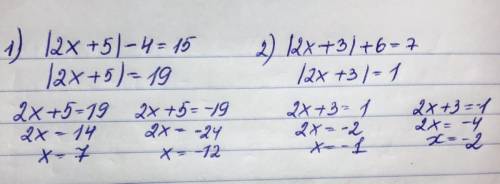 1) |2x+5|-4=15
|2x+5|=19
2x+5=19
2x=14
x=7
2x+5=-19
2x=-24
x=-12
2) |2x+3|+6=7
|2x+3|=1
2x+3=1
2x=-2
x=-1
2x+3=-1
2x=-4
x=-2